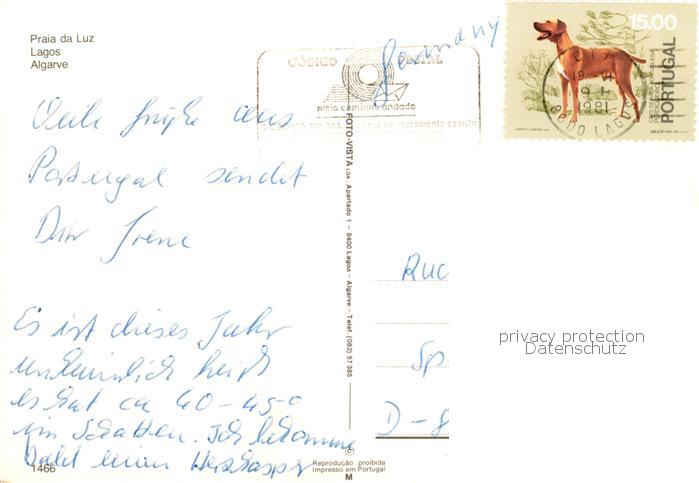 Praia da Luz
Lagos
Algarve
Germany
CÓDIGO POSTAL
meio caminho andado
15.00
PORTUGAL
1981
8600 LAGOS
Viele Grüße aus
Portugal sendet
Dir Irene
Es ist dieses Jahr
unheimlich heiß
es hat ca 40-45°
im Schatten. Ich bekomme
bald einen Herzkasper
FOTO-VISTA LDA. Apartado 1 - 8400 Lagoa - Algarve - Telef. (082) 57 385
Ruc
Sp
D-8
privacy protection
Datenschutz
1466
©
Reprodução proibida
Impresso em Portugal
M